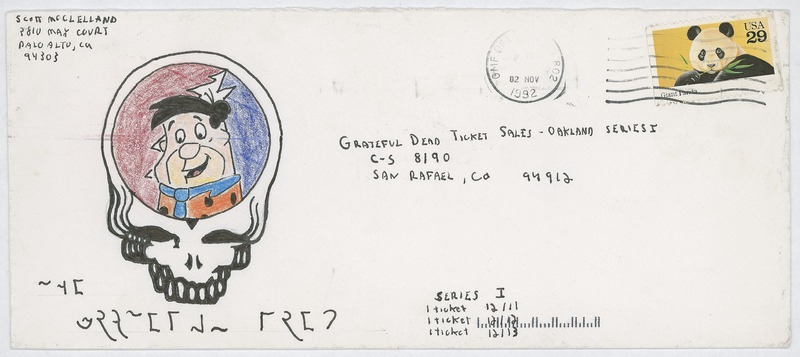 SCOTT MCCLELLAND
3810 MAY COURT
PALO ALTO, CA
94303
02 NOV
1992
USA
29
Giant Panda
GRATEFUL DEAD TICKET SALES - OAKLAND SERIES I
C-S 8190
SAN RAFAEL, CA 94912
SERIES I
1 ticket 12/11
1 ticket 12/12
1 ticket 12/13